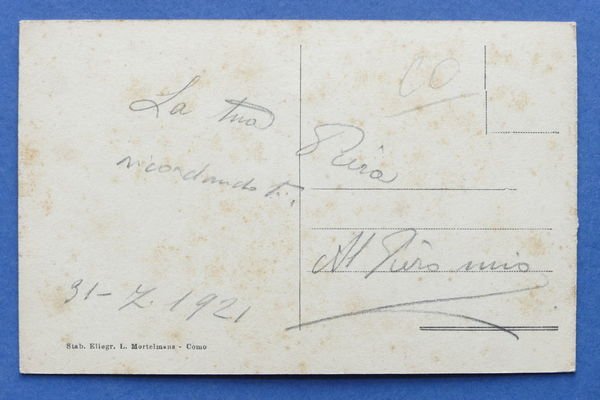 La tua
Piera
ricordandoti..
31-7.1921
Al Piero mio
CO
Stab. Eliogr. L. Mortelmans - Como